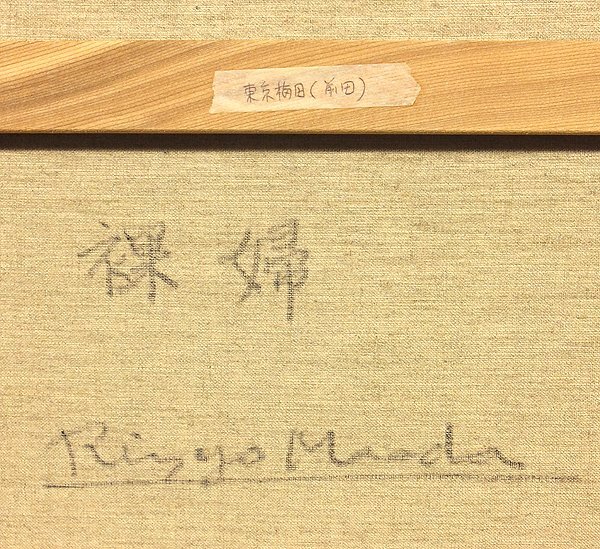 東京梅田(前田)
裸婦
Rizyo Maeda